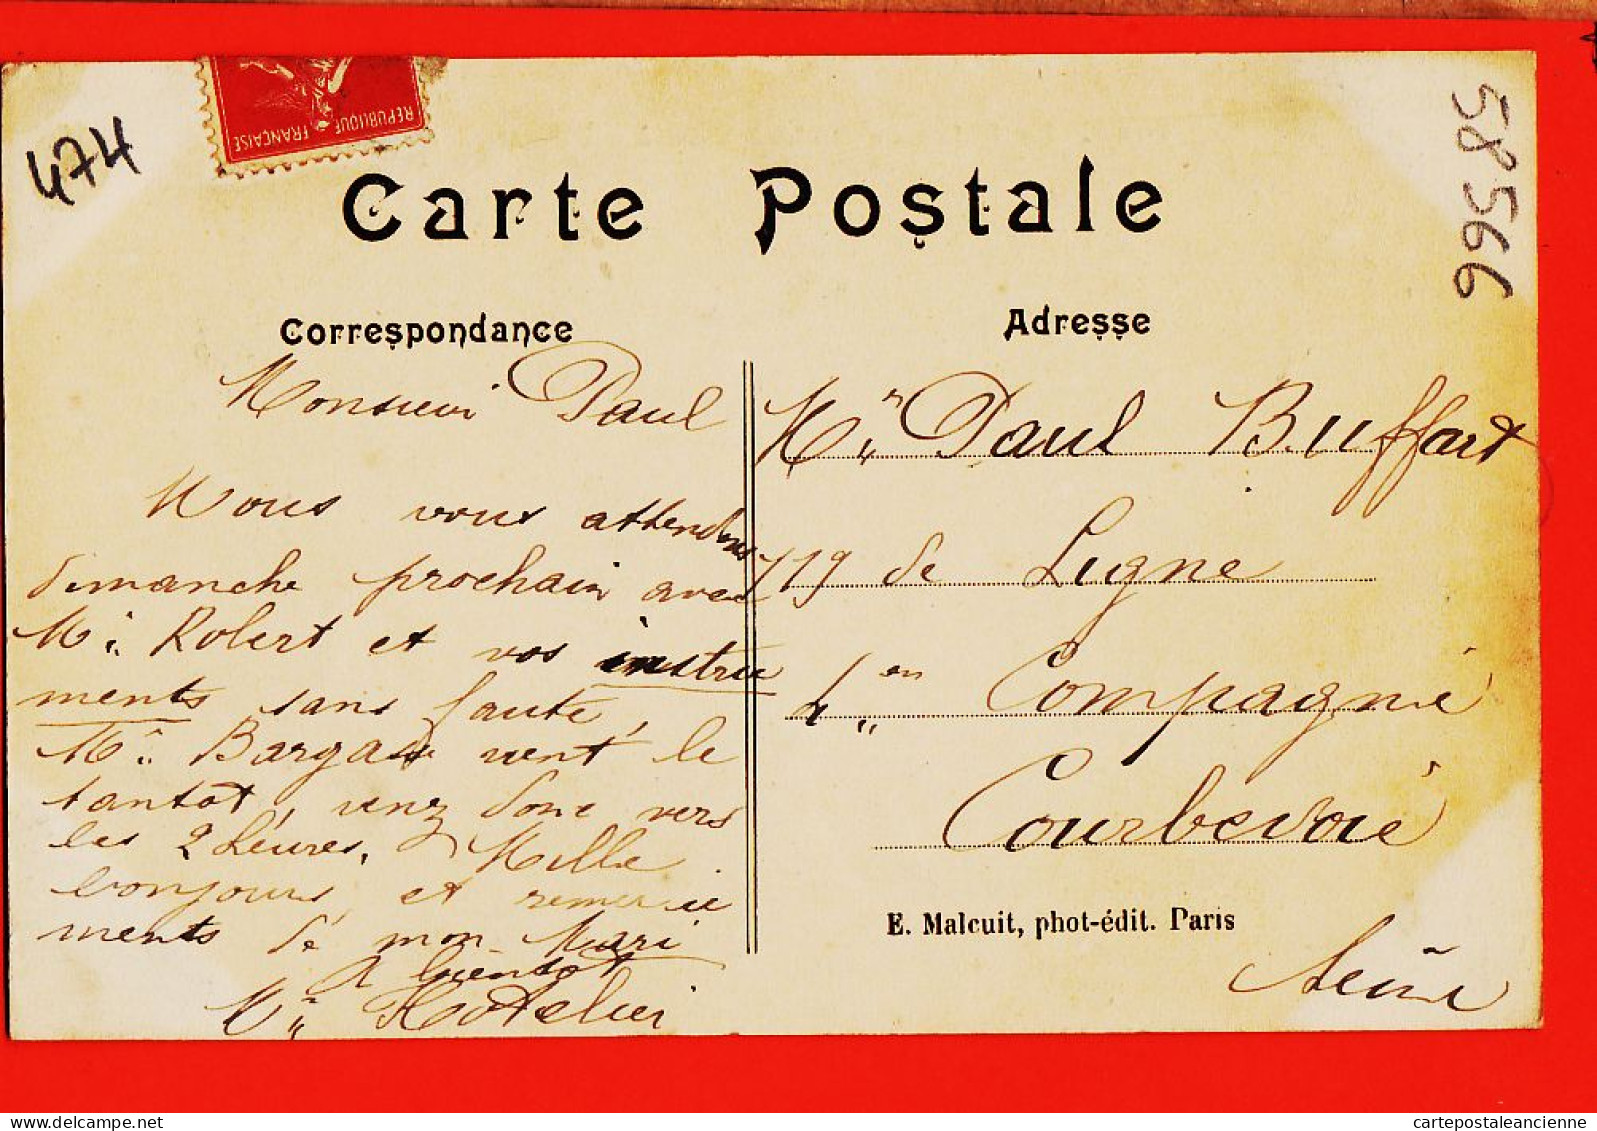 474
REPUBLIQUE FRANÇAISE
58566
Carte Postale
Correspondance
Monsieur Paul
Nous vous attendons
dimanche prochain avec
Mr. Robert et vos instru
ments sans faute,
Mr. vient le
tantôt, venez donc vers
les 2 heures. Mille
bonjours et remercie
ments de mon Mari
A bientôt
Mm Hotelier
Adresse
Mr. Paul Buffart
119 de Ligne
4 en Compagnie
Courbevoie
E. Malcuit, phot-édit. Paris
Seine
delcampe.net
cartepostaleancienne